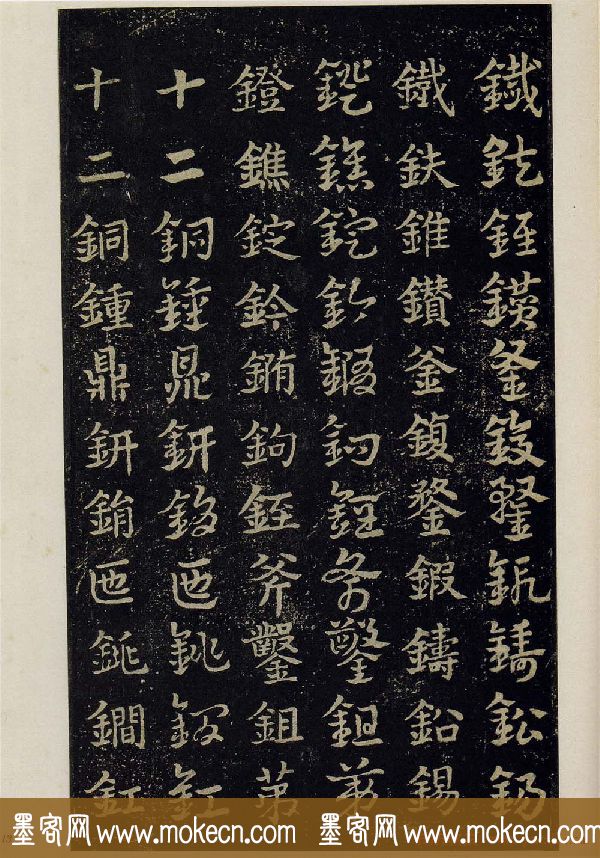 鐵鈇錐鑽釜鍑鍪鍜鑄鉛錫
鐵鈇錐鑽釜鍑鍪鍜鑄鉛錫
鐙鐎錠鈐鉤銍斧鑿鉏第
鐙鐎錠鈐銪鉤銍斧鑿鉏第
十二銅鍾鼎鈃鋗匜銚鐧釭
十二銅鍾鼎鈃鋗匜銚鐧釭
墨客网 www.mokecn.com 墨客网 www.mokecn.com